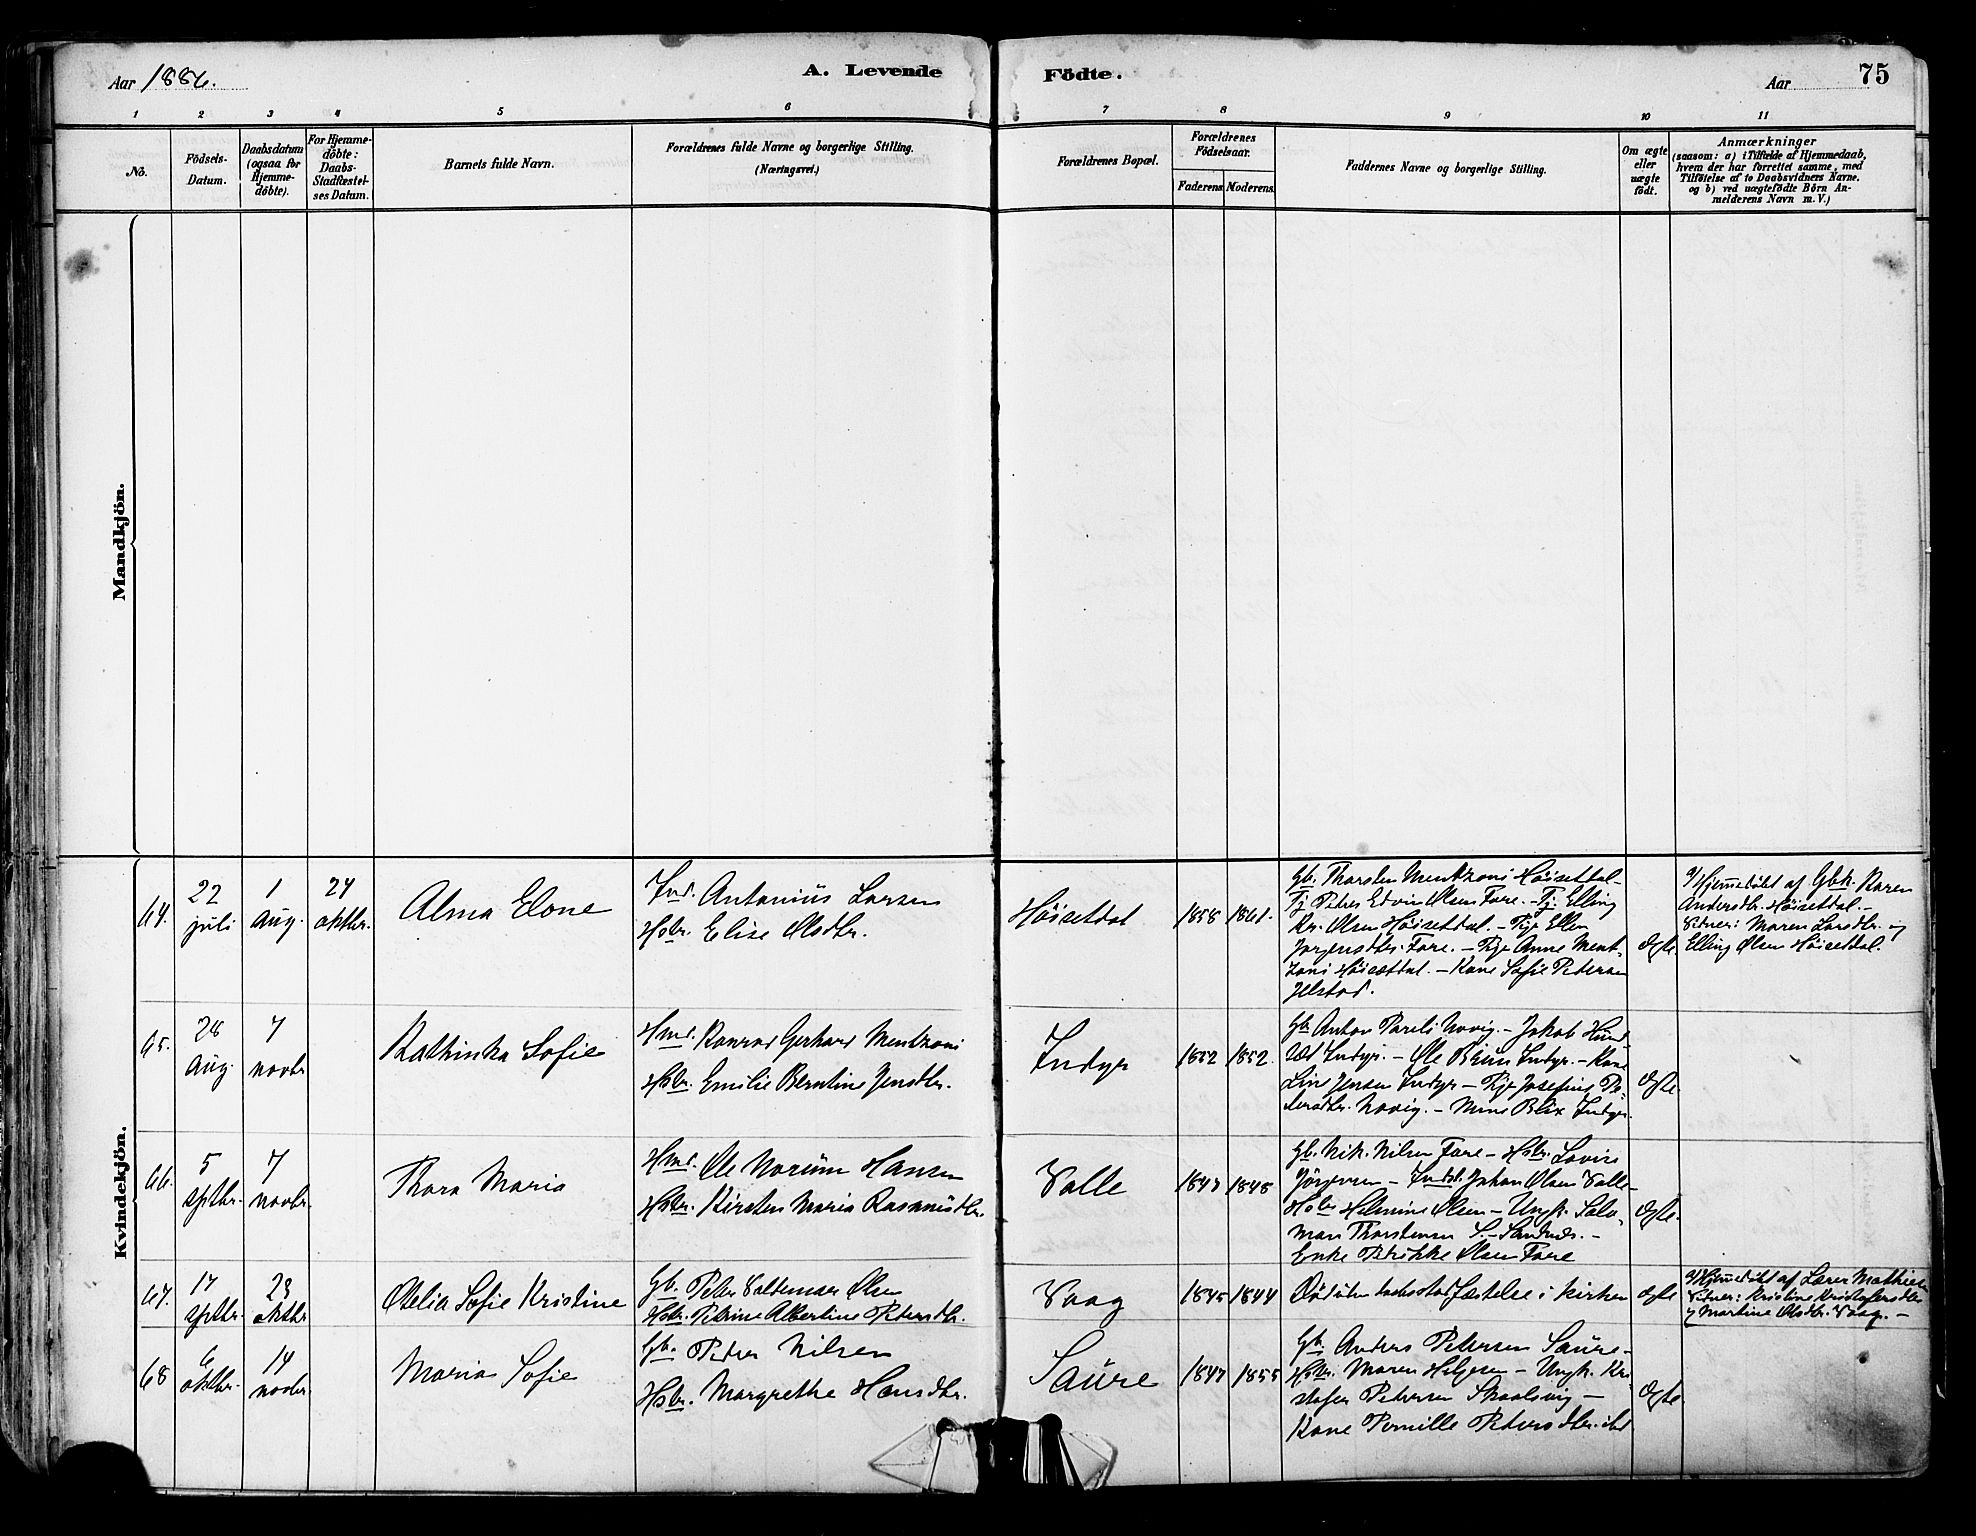 Aar 1886.
A. Levende
Födte.
Aar
75
1 2 3 4 5 6 7 8 9 10 11
No.
Födsels-
Datum.
Daabsdatum
(ogsaa for
Hjemme-
döbte).
For Hjemme-
döbte:
Daabs-
Stadfæstel-
ses Datum.
Barnets fulde Navn.
Forældrenes fulde Navne og borgerlige Stilling.
(Næringsvei.)
Forældrenes Bopæl.
Forældrenes
Födselsaar.
Faderens.
Moderens.
Faddernes Navne og borgerlige Stilling.
Om ægte
eller
uægte
födt.
Anmærkninger
(saasom: a) i Tilfælde af Hjemmedaab,
hvem der har forrettet samme, med
Tilföielse af to Daabsvidners Navne,
og b) ved uægtefödte Börn An-
melderens Navn m. V.)
Mandkjön.
Kvindekjön.
64.
22
juli
1
Aug.
24
oktbr.
Alma Elone
Ind. Antonius Larsen
Hsbr. Elise Olsdtr.
Höisetdal
1858
1861.
Gb. Thorsten Mentzoni Höisetdal-
Tj. Petter Edvin Olsen Fore. - Tj. Elling
Kr. Olsen Höisetdal. - Pige Ellen
Jörgensdtr. Fore. - Pige Anne Ment-
zoni Höisætdal. - Kone Sofie Petersen
Jelstad.
ægte.
Hjemmedöbt af Gbk. Karen
Andersdtr. Höisetdal.-
Vidner: Maren Larsdtr. og
Elling Olsen Höisetdal.
65.
28
Aug.
7
novbr
Kathinka Sofie
Hmd. Konrad Gerhard Mentzoni
Hsbr. Emilie Berntine Jensdtr.
Indyr
1852
1852
Gb Anton Pareli Novig. - Jakob Hund-
Indyr. - Ole Bruun Indyr. - Kone
Line Jensen Indyr - Pige Josefine Pe-
dersdtr. Novig. - Mine Blix Indyr.
ægte.
66.
5
sptbr.
7
novbr.
Thora Maria
Hmd. Ole Norum Hansen
Hsbr. Kirsten Maria Rasmusdtr.
Valle
1847
1848
Gb. Nik. Nilsen Fore - Hsbr. Lovise
Jörgensen - Indst. Johan Olsen Valle-
Hsbr Helmine Olsen - Ungk. Salo-
mon Thorstensen S.-Sandnes. -
Enke Birikke Olsen Fore
ægte.
67.
17
sptbr.
23
oktbr
Otelia Sofie Kristine
Gb. Peter Valdemar Olsen
Hsbr. Petrine Albertine Petersdtr.
Vaag
1845
1844
Död uden daabsstadfæstelse i kirken
ægte
Hjemmedöbt af Lærer Mathisen
Vidner: Kristine Kristofersdtr
og Martine Olsdtr. Vaag. -
68
6
oktbr.
14
novbr.
Maria Sofie
Gb. Peder Nilsen
Hsbr. Margrethe Hansdtr.
Saure
1847
1855
Gb. Anders Petersen Saure-
Hsbr. Maren Helgesen - Ungk. Kri
stofer Petersen Skaalsvig -
Kone Pernille Petersdtr. ibd
ægte.